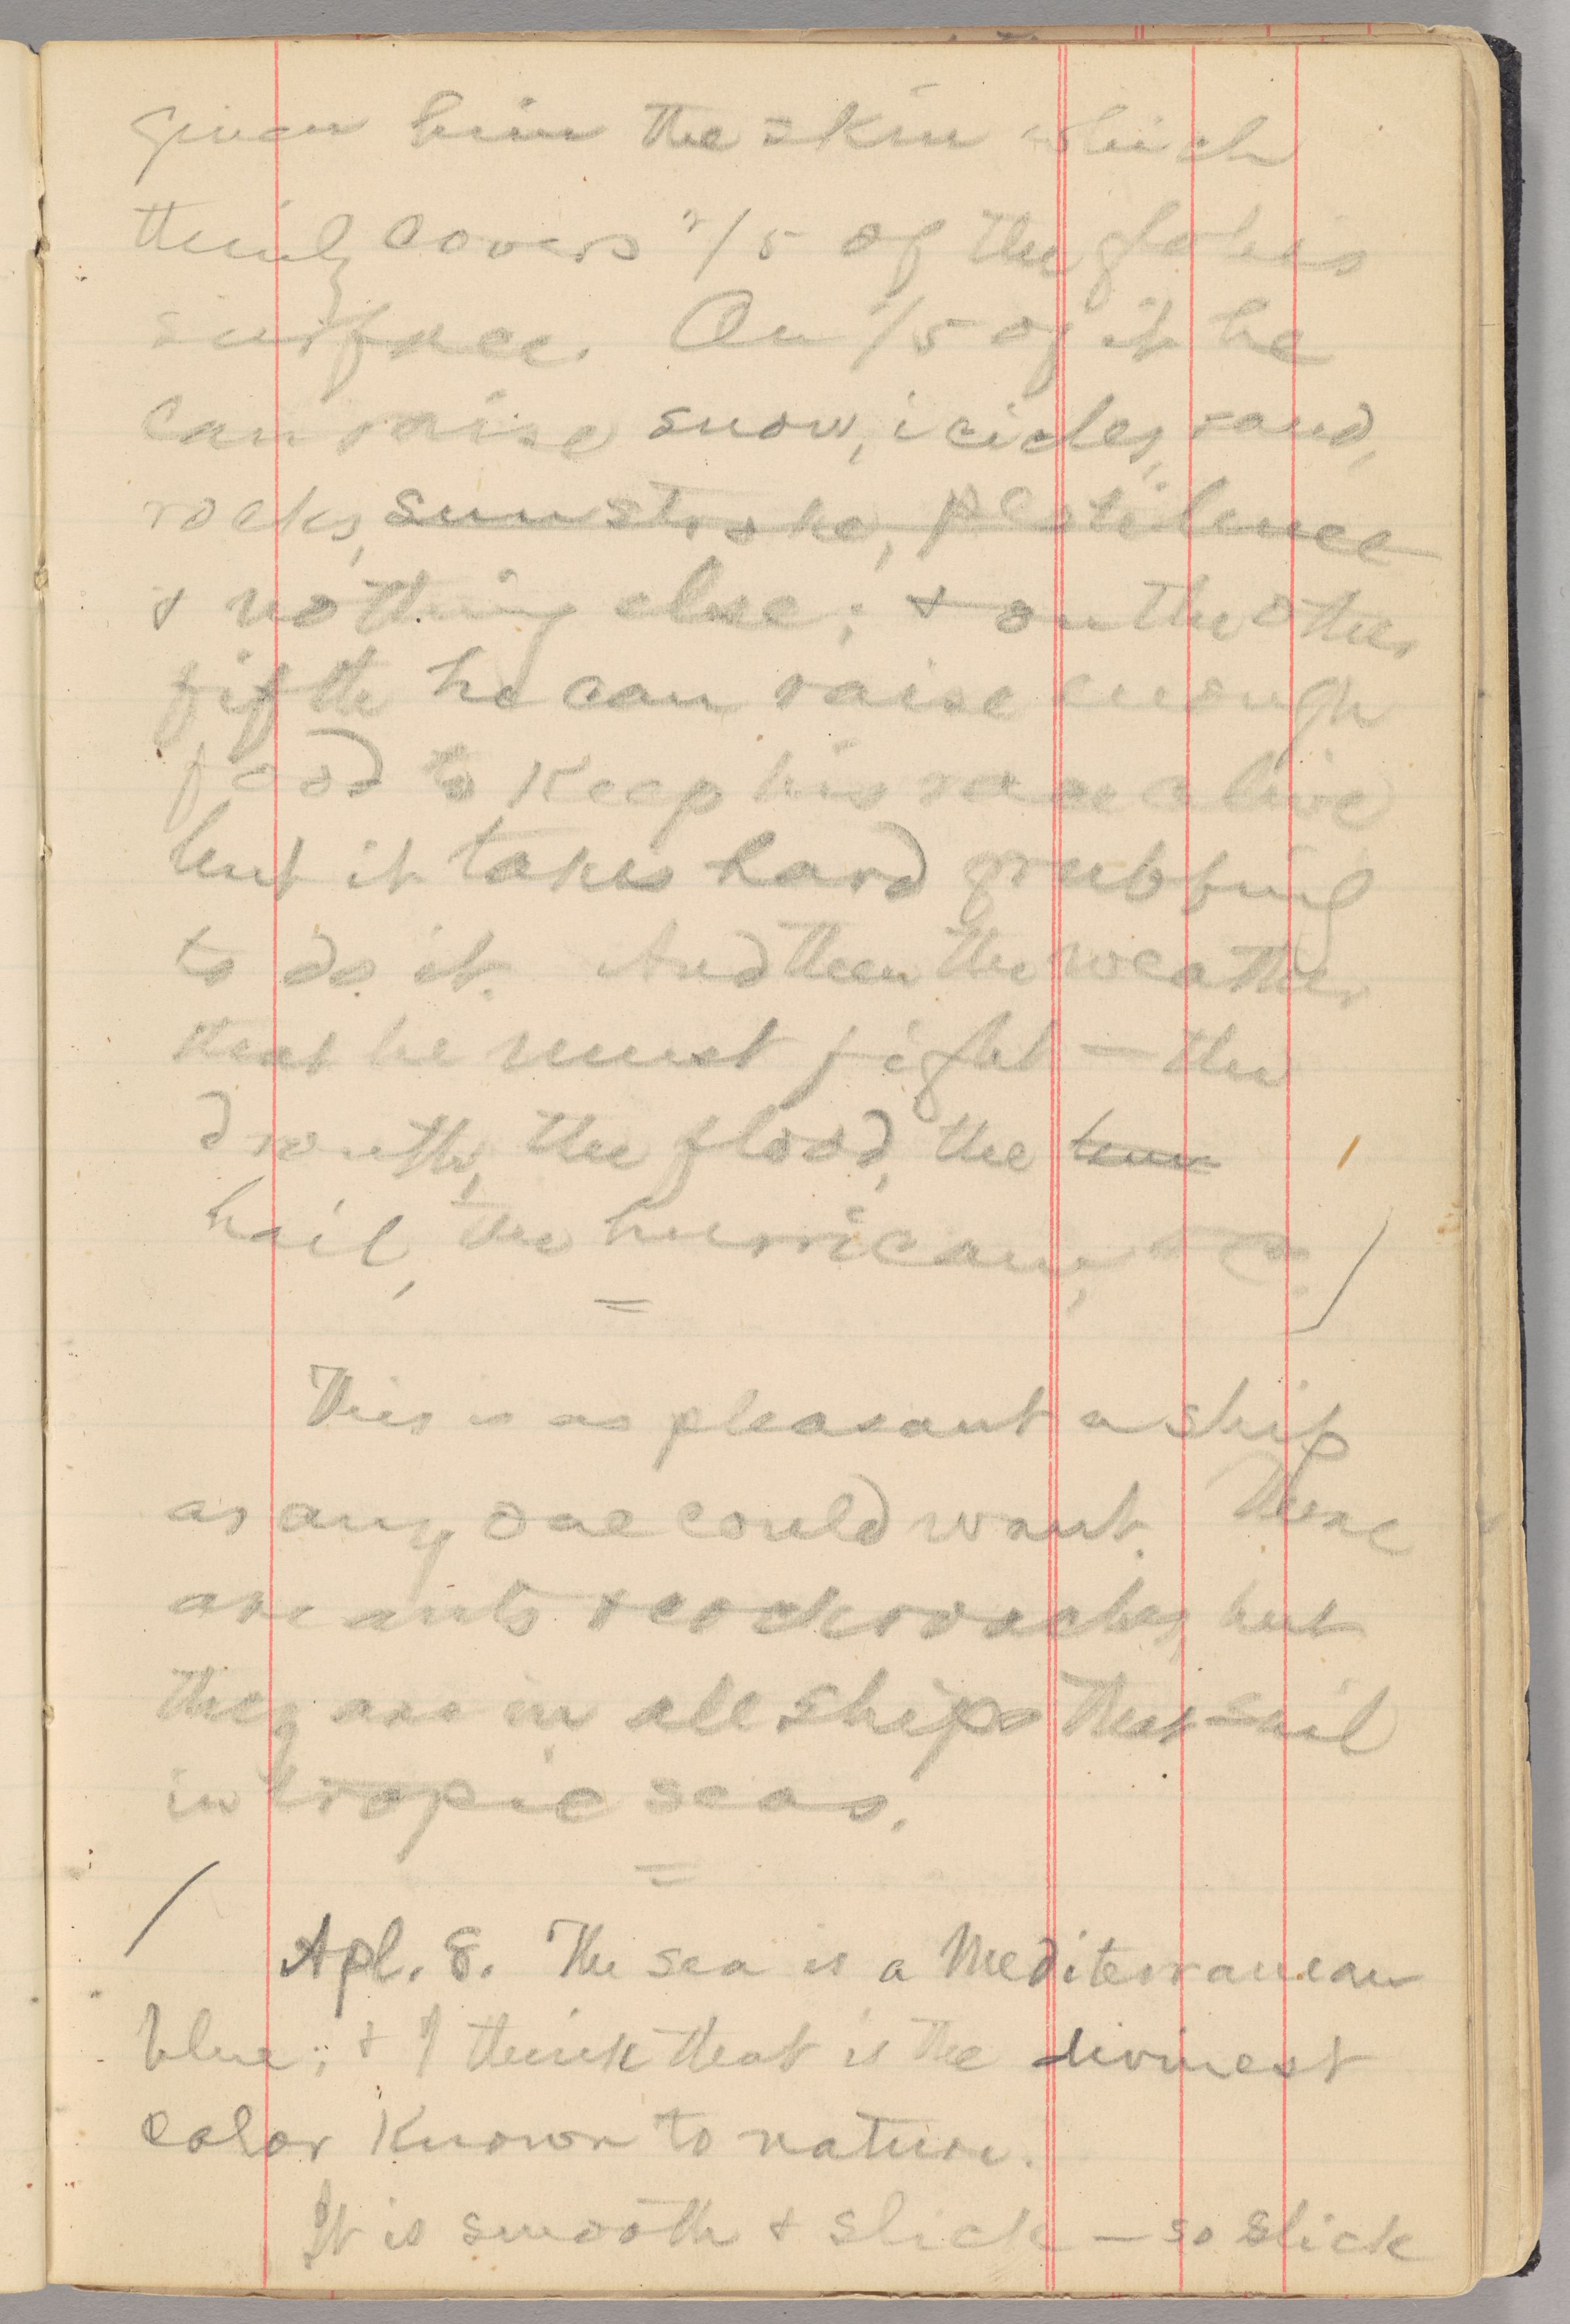 given him the skin which
thinly covers 2/5 of the globe's
surface. On 1/5 of it he
can raise snow, icicles, sand,
rocks, sunstroke, pestilence
& nothing else; & on the other
fifth he can raise enough
food to keep his race alive
but it takes hard grubbing
to do it. And then the weather
that he must fight — the
drouth, the flood, the
hail, the hurricane, &c.
=
This is as pleasant a ship
as any one could want. There
are ants & cockroaches, but
they are in all ships that sail
in tropic seas.
=
Apl. 8. The sea is a Mediterranean
blue; & I think that is the divinest
color known to nature.
It is smooth & slick — so slick